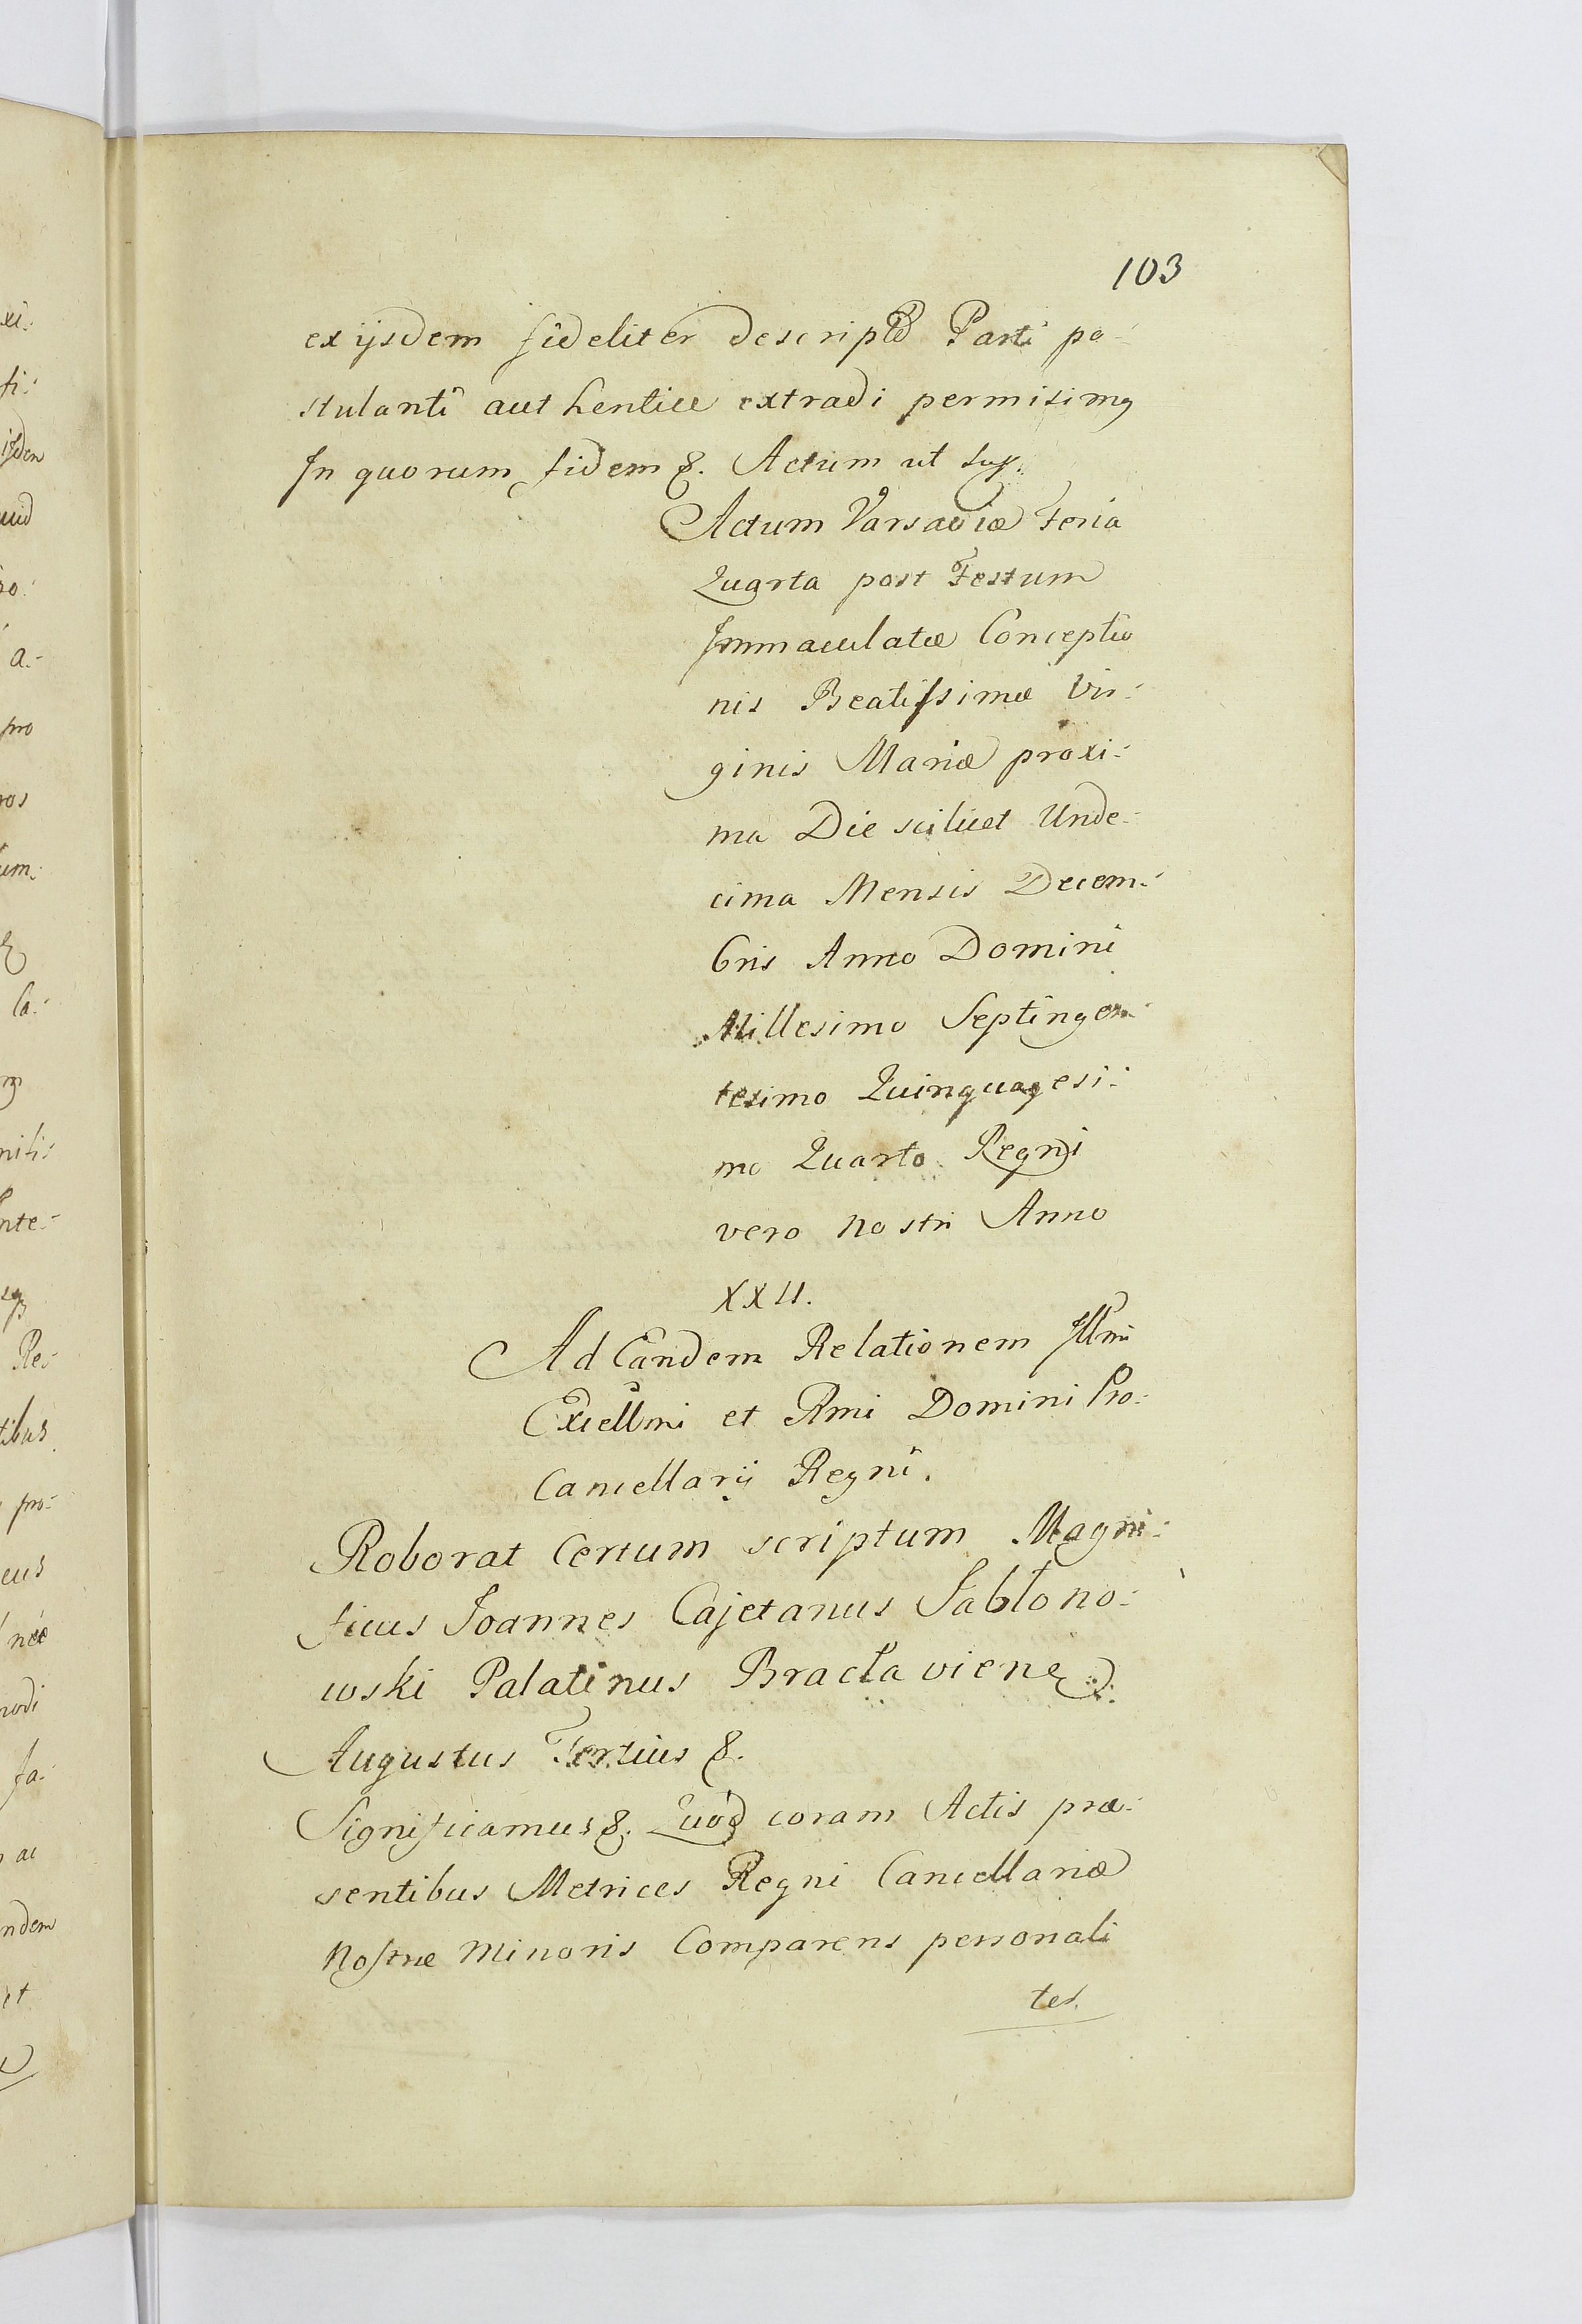 103
ex ijsdem fideliter descriptæ Parti po-
stulanti authentice extradi permisimꝯ
In quorum fidem &. Actum ut sup.
Actum Varsaviæ Feria
Quarta post Festum
Immaculatæ Conceptio
nis Beatissimæ Vir-
ginis Mariæ proxi-
ma Die scilicet Unde-
cima Mensis Decem-
bris Anno Domini
Millesimo Septingen-
tesimo Quinquagesi-
mo Quarto Regni
vero nostri Anno
XXII.
Ad Eandem Relationem Illmi
Excellmi et Rmi Domini Pro-
Cancellarij Regni.
Roborat Certum scriptum Magni-
ficus Joannes Cajetanus Jabłono-
wski Palatinus Bracłavien
Augustus Tertius &.
Significamus &. Quod coram Actis præ-
sentibus Metrices Regni Cancellariæ
Nostræ Minoris Comparens personali
ter.